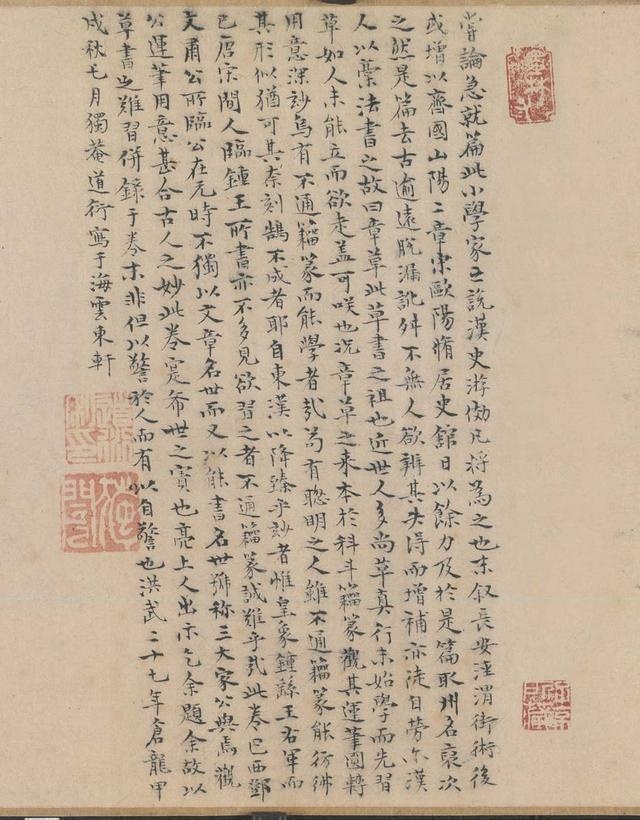 嘗論急就篇此小學家之說漢史游倣凡將為之也末叙長安涇渭街術後
或增以齊國山陽二章宋歐陽脩居史館日以餘力及於是篇取州名裒次
之然是篇去古逾遠脫漏訛舛不無人欲辨其失得而增補亦徒自勞尔漢
人以藁法書之故曰章草此草書之祖也近世人多尚草真行未始學而先習
草如人未能立而欲走盖可咲也况章草之来本於科斗籕篆觀其運筆圓轉
用意深玅烏有不通籕篆而能學者㢤苟有聰明之人雖不通籕篆能彷彿
其形似猶可其柰刻鵠不成者耶自東漢以降臻乎玅者惟皇象鍾繇王右軍而
已唐宋間人臨鍾王所書亦不多見欲習之者不通籕篆誠難乎㢤此卷巴西鄧
文肅公所臨公在元時不獨以文章名世而又以能書名世號称三大家公與焉觀
公運筆用意甚合古人之妙此卷寔希世之寶也亮上人出示乞余題余故以
草書之難習併録于卷末非但以警於人而有以自警也洪武二十七年倉龍甲
戌秋七月獨菴道衍寫于海雲東軒